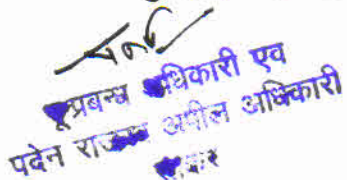 भूप्रबन्ध अधिकारी एव
पदेन राजस्व अपील अधिकारी